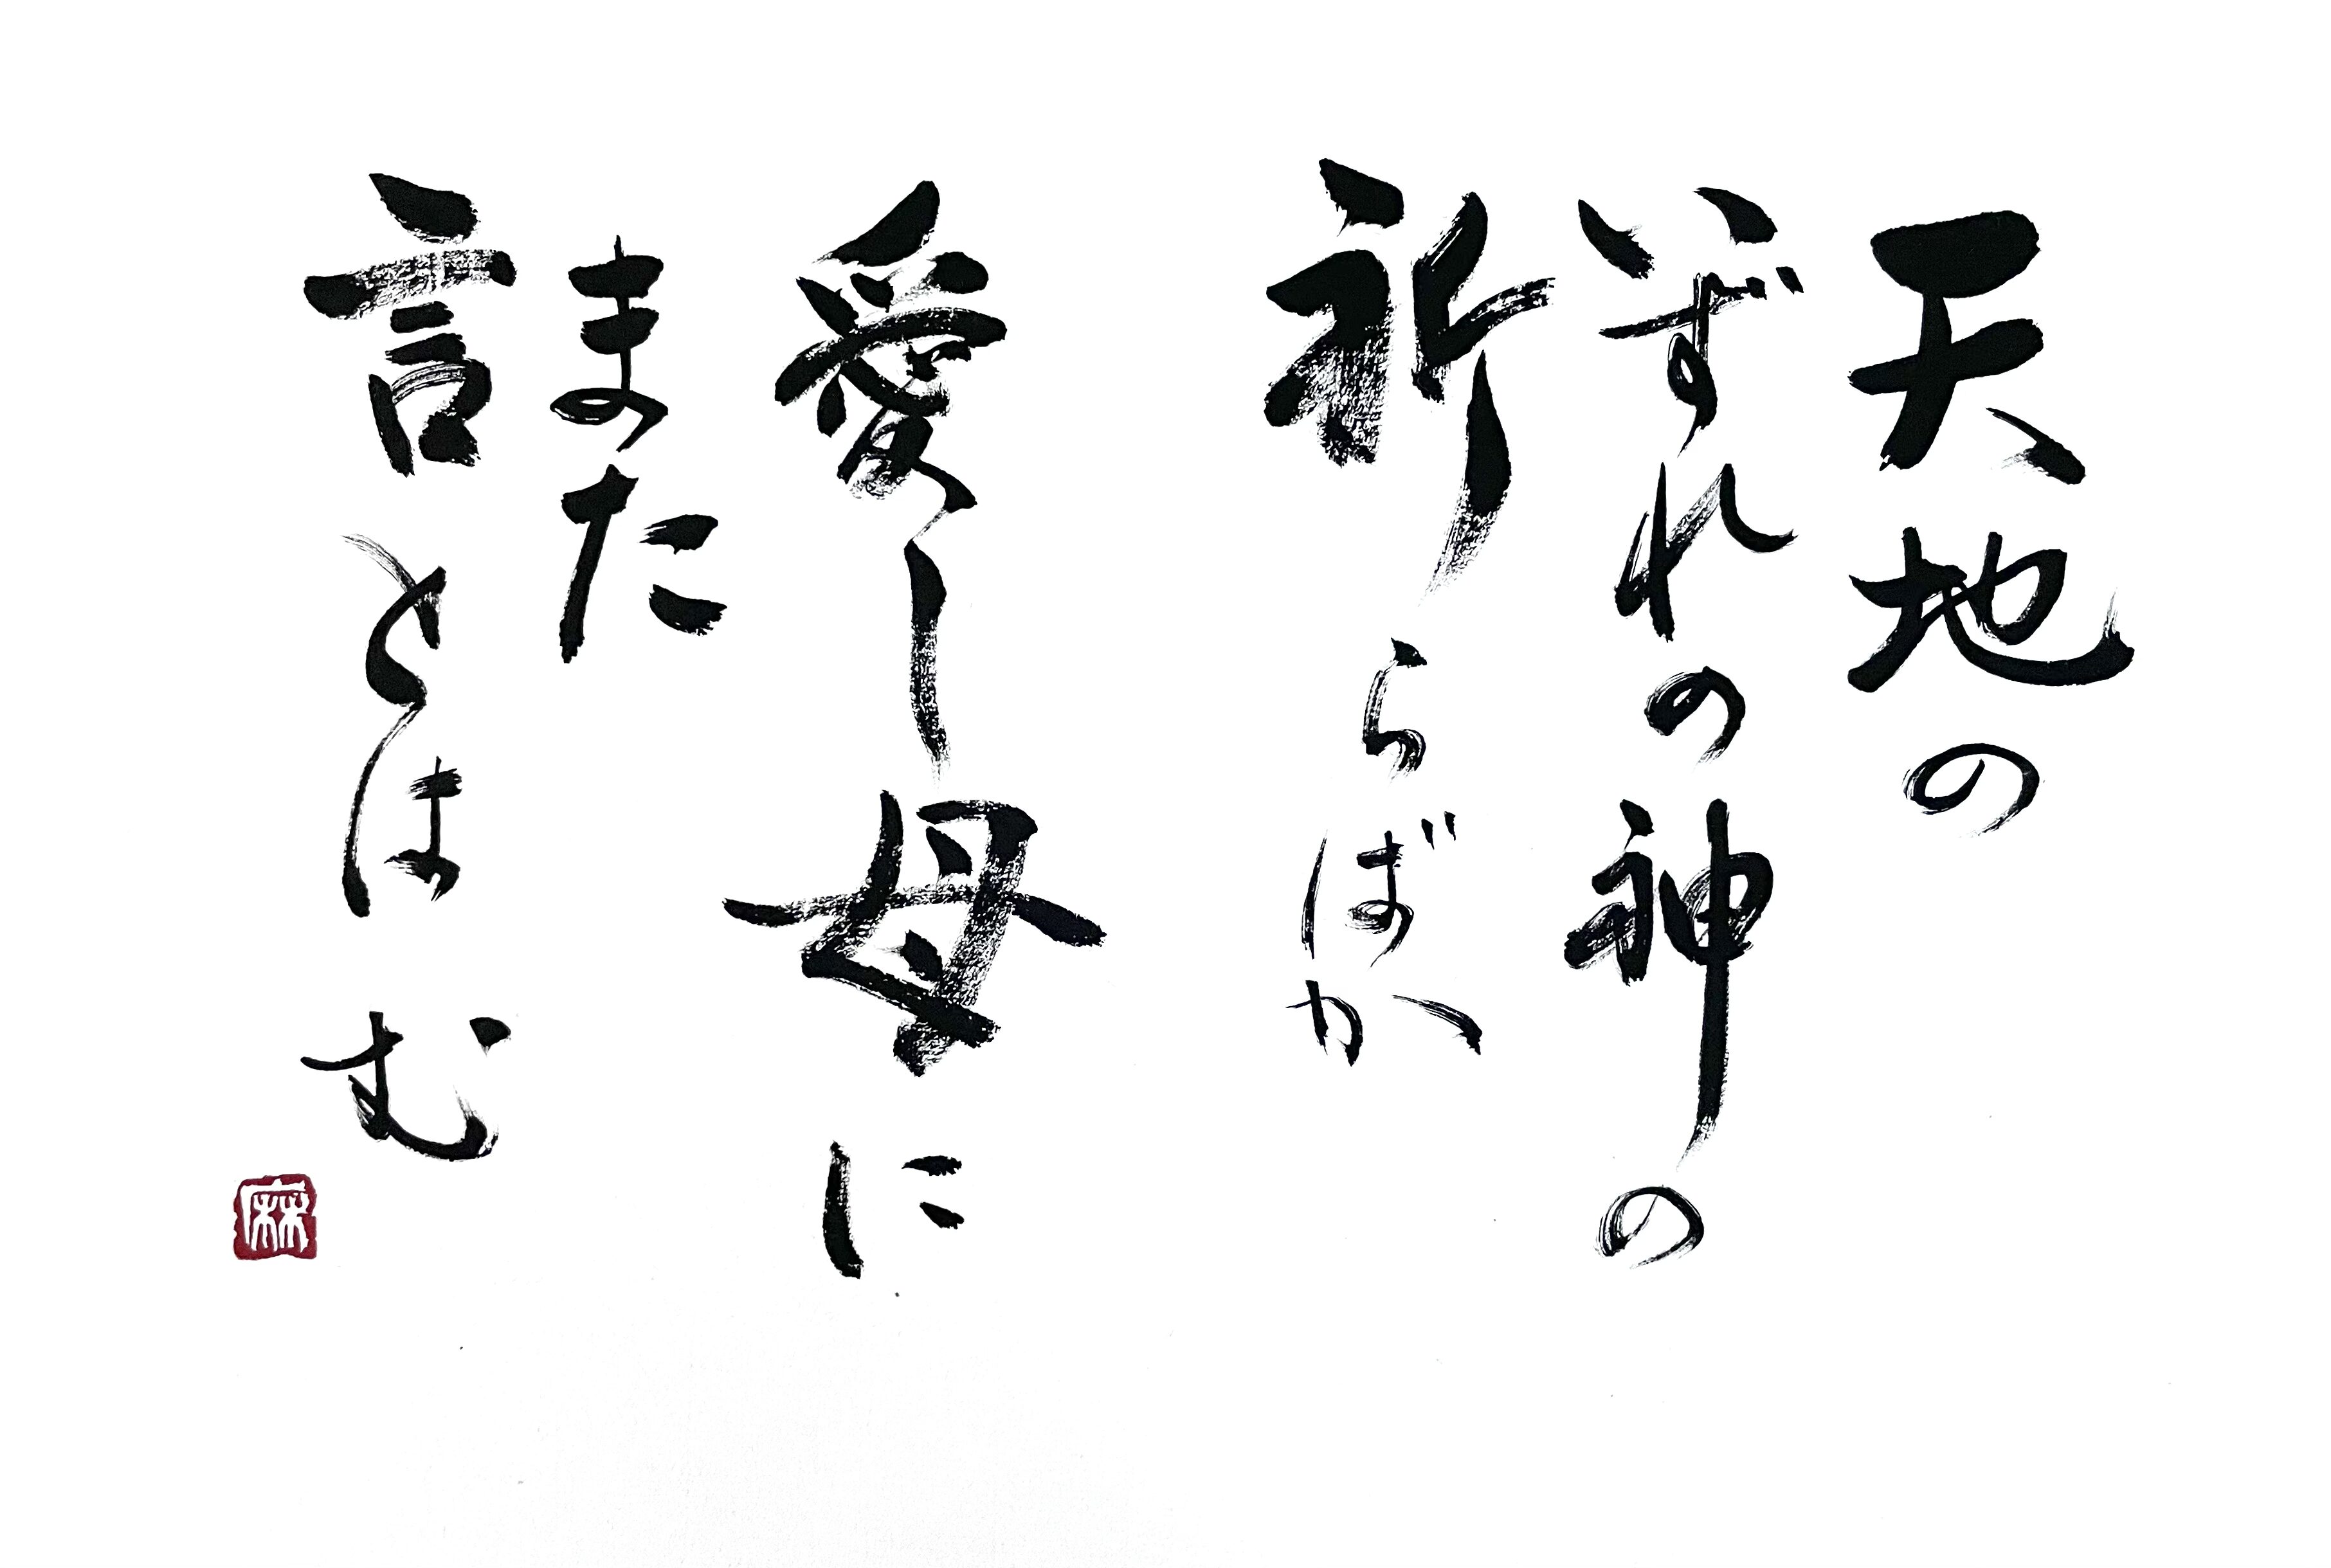 天地の
いずれの神の
祈らばか
愛し母に
また
言とはむ
麻